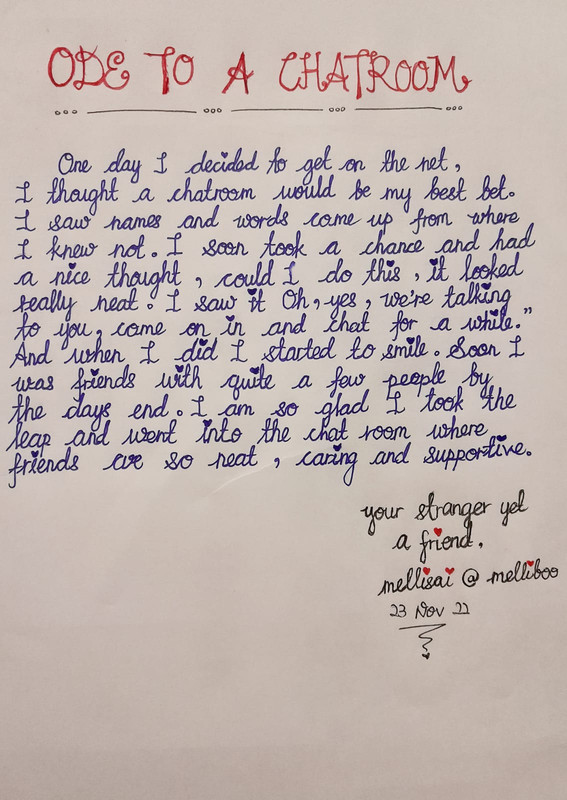 ODE TO A CHATROOM
One day I decided to get on the net,
I thought a chatroom would be my best bet.
I saw names and words come up from where
I knew not. I soon took a chance and had
a nice thought, could I do this, it looked
really neat. I saw it Oh, yes, we're talking
to you, come on in and chat for a while."
And when I did I started to smile. Soon I
was friends with quite a few people by
the days end. I am so glad I took the
leap and went into the chat room where
friends are so neat, caring and supportive.
your stranger yet
a friend.
mellisai @ melliboo
23 Nov 22